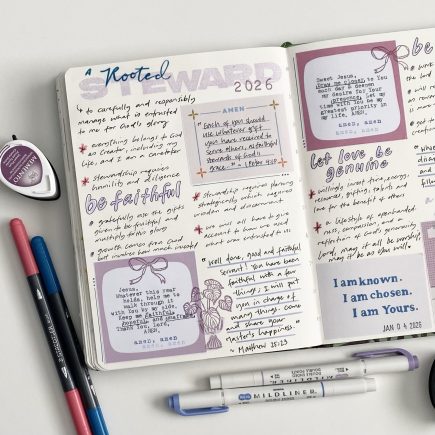 A Rooted
STEWARD
2026
↳ to carefully and responsibly
manage what is entrusted
to me for God's glory.
* everything belongs to God
as Creator, including my
life, and I am a caretaker
* Stewardship requires
humility and diligence
be faithful
* gratefully use the gifts
given to be fruitful and
multiply to His glory
* growth comes from God
AMEN
"Each of you should
use whatever gift
you have received to
serve others, as faithful
stewards of God's
grace."
1 Peter 4:10
* Stewardship requires planning
strategically which requires
wisdom and discernment
* we will all have to give
account to how we used
what was entrusted to us
"Well done, good and faithful
servant! You have been
faithful with a few
things; I will put
you in charge of
many things. Come
and share your
master's happiness."
~ Matthew 25:23
Jesus,
Whatever this year
holds, help me to
walk through it
with You by my side.
Keep me faithful,
hopeful and unafraid.
Thank You, Lord,
AMEN.
amen, amen
Sweet Jesus,
Draw me closer to You
each day & deepen
my desire for Your
presence. Let my
time with You be my
greatest priority in
my life, AMEN.
amen, amen
be
let love be
genuine
* willingly invest time, energy,
resources, gifting, talents and
love for the benefit of others
* a lifestyle of openhanded-
ness, compassion, and
reflection of God's generosity
Lord, may it all be worship,
may it be as You will.
I am known.
I am chosen.
I am Yours.
JAN 04 2026
MILDLINER
MILDLINER